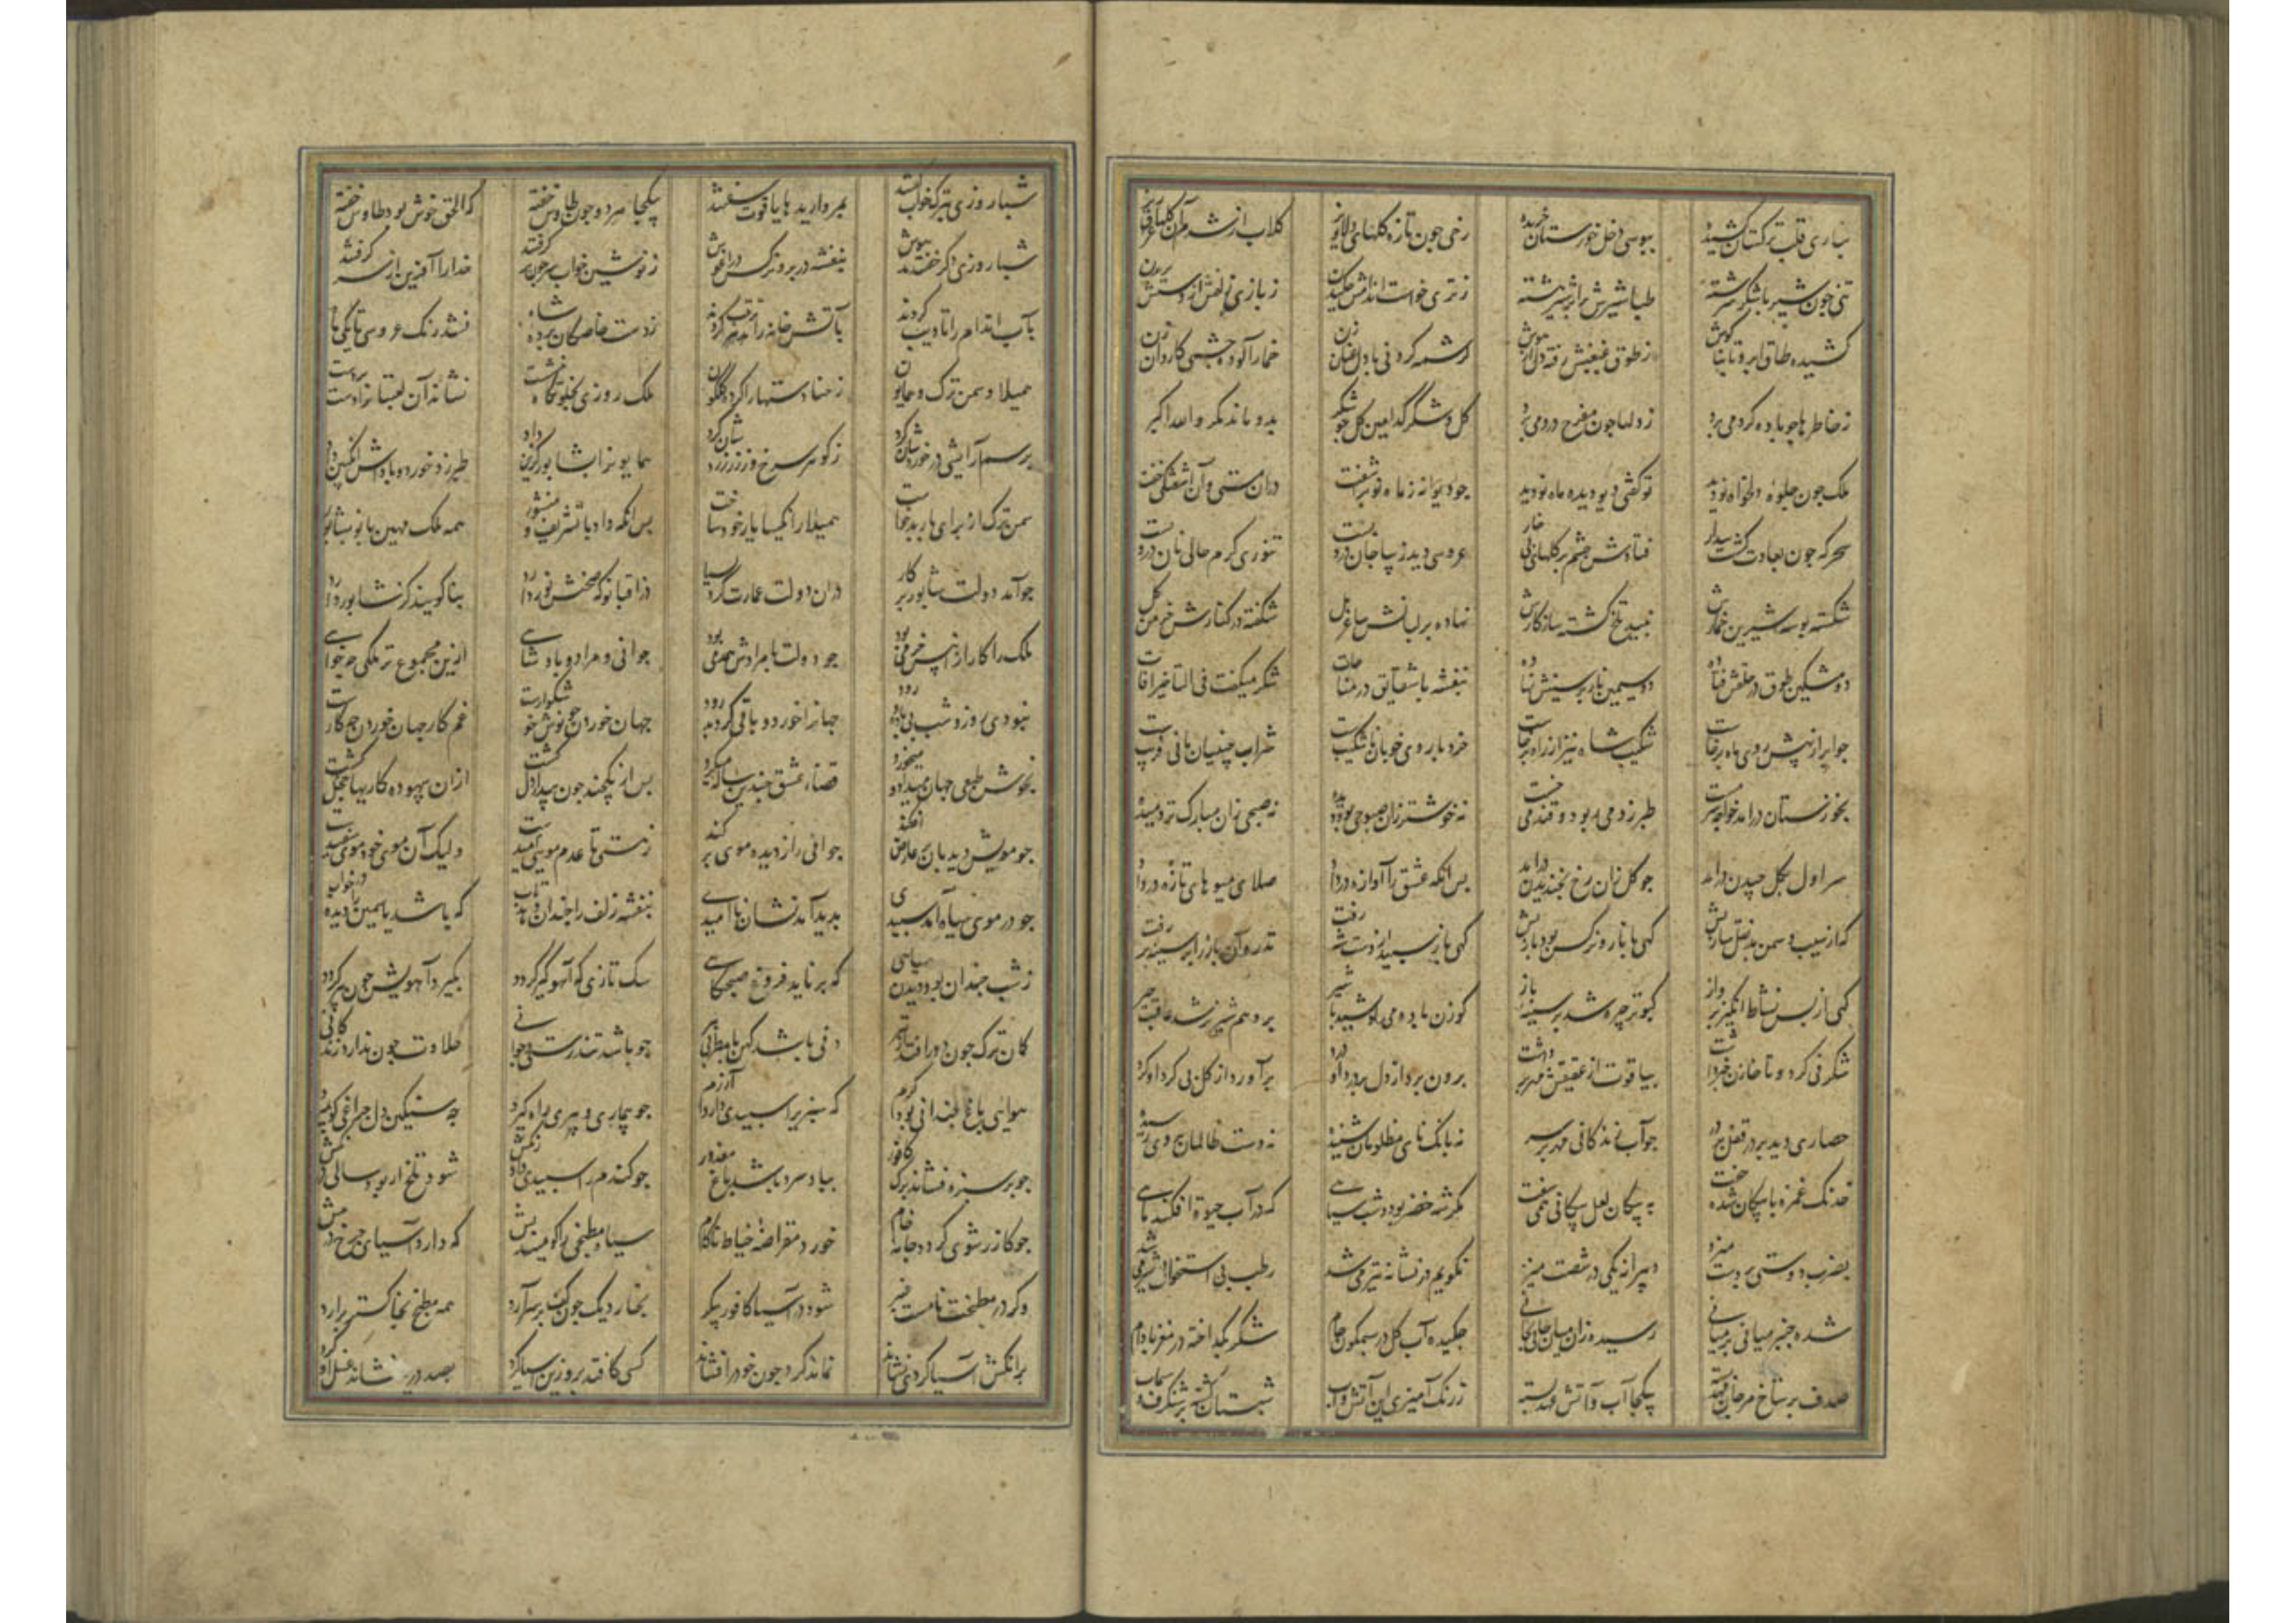 بیاری قلب ترکستان کشیده ببوسی دخل خوزستان خریده رخی جون تازه کلهای دلاویز کلاب از شرم آن کلها عرق ریز
تنی جون شیر با شکر سرشته طباشیرش برابر شیر هشته ز تری خواست اندامش جکیدن ز بازی زلفش از دستش پریدن
کشیده طاق ابرو تا بناکوش ز طوق غبغبش رفته دل از هوش کرشمه کردنی با دل عنان زن خمارآلوده جشمی کاروان زن
ز خاطرها جو باده کرد می برد ز دلها جون مفرح درد می برد کل و شکر کدامین کل جو شکر بدو ماند مکر والله اکبر
ملک جون جلوه دلخواه نو دید تو کفتی دیو دیده ماه نو دید جو دیوانه ز ماه نو براشفت دران مستی و آن اشفتکی خفت
سحرکه جون بعادت کشت بیدار فتادش جشم بر کلهای بی خار عروسی دید زیبا جان درو بست تنوری کرم حالی نان درو بست
شکسته بوسه شیرین خمارش نبید تلخ کشته سازکارش نهاده بر لبانش ساغر مل شکفته در کنارش خرمن کل
دو مشکین طوق در حلقش فتاده دو سیمین نار بر سینش نهاده بنفشه با شقایق در مناجات شکر میکفت فی التاخیر آفات
جو ابر از پیش روی ماه برخاست شکیب شاه نیز از راه برخاست خرد با روی خوبان ناشکیب است شراب جینیان مانی فریب است
بخوزستان درآمد خواجه سرمست طبرزد می ربود و قند می خست نه خوشتر زان صبوحی بود دیده نه صبحی زان مبارک تر دمیده
سر اول بکل جیدن درآمد جو کل زان رخ بخندیدن درآمد بس انکه عشق را آوازه در داد صلای میوهای تازه در داد
که از سیب و سمن بد نقل سازیش کهی با نار و نرکس بود بازیش کهی باز سبید از دست شه رفت تذرو آن باز را بر سینه بر رفت
کهی از بس نشاط انکیز پرواز کبوتر جیره شد بر سینه باز کوزن ماده می کوشید با شیر برو هم شیر نر شد عاقبت جیر
شکرفی کرد و تا خازن خبر داشت بیاقوت از عقیقش مهر برداشت برون برد از دل پردرد او درد برآورد از کل بی کرد او کرد
حصاری دید بر در قفل بر در جو آب زندکانی مهر بر سر نه بانک نای مظلومان شنیده نه دست ظالمان بر وی رسیده
خدنک غمزه با پیکان شده جفت به پیکان لعل پیکانی همی سفت مکر شه خضر بود و شب سیاهی که در آب حیوة افکند ماهی
بضرب دوستی بر دست میزد دبیرانه یکی در شصت میزد نکویم در نشانه تیر می شد رطب بی استخوان شیر می شد
شده جنبر میانی بر میانی رسیده زان میان جانی بجانی جکیده آب کل در سیمکون جام شکر بکداخته در مغز بادام
صدف بر شاخ مرجان مهد بسته بیکجا آب و آتش عهد بسته ز رنک آمیزی این آتش و آب شبستان کشته پر شنکرف و سیماب
شباروزی بترک خواب کفتند بمرواریدها یاقوت سفتند بیکجا هر دو جون طاوس خفته که الحق خوش بود طاوس خفته
شباروزی دکر خفتند بیهوش بنفشه در بر و نرکس در آغوش ز نوشین خواب سر جون برکرفتند خدا را آفرین از سر کرفتند
بآب اندام را تادیب کردند بآتش خانه را ترتیب کردند ز دست خاصکان برده شاه نشد رنک عروسی تا یکی ماه
همیلا و سمن ترک و همایون ز حنا دستها را کرده کلکون ملک روزی بخلوتکاه بنشست نشاند آن لعبتان را نیز بردست
برسم آرایشی در خوردشان کرد ز کوهر سرخ و از زر زردشان کرد همایون را بشابور کزین داد طبرزد خورد و باداش انکبین داد
سمن ترک از برای باربد خاست همیلا را نکیسا یار خود ساخت بس انکه داد با تشریف و منشور همه ملک مهین بانو بشابور
جو آمد دولت شابور بر کار دران دولت عمارت کرد بسیار از اقبالی که بختش نور را داد بنا کویند کز شابور را داد
ملک را کار از آن پس خرمی بود جو دولت با مرادش همدمی بود جوانی و مراد و بادشاهی ازین مجموع تر ملکی جه خواهی
نبودی روز و شب بی باده و رود جهان را خورد و باقی کرد بدرود جهان خوردن جو نوش خوشکوارست غم کار جهان خوردن جه کارست
بخوش طبعی جهان میداد و میخورد قضاء عشق جندین ساله میکرد بس از یکچند جون بیدار دل کشت ازان بیهوده کاریها خجل کشت
جو مویش دیدبان بر عارض افکند جوانی را ز دیده موی برکند ز هستی تا عدم مویی امیدست ولیک آن موی خود موی سفیدست
جو در موی سیاه آمد سبیدی بدید آمد نشان ناامیدی بنفشه زلف را جندان دهد تاب که باشد یاسمین را دیده در خواب
ز شب جندان بود دیدن سیاهی که برناید فروغ صبحکاهی سک تازی که آهو کیر کردد بکیرد آهویش جون پیر کردد
کمان ترک جون دور افتد از تیر دفی باشد کهن با مطربی پیر جو باشد تندرستی و جوانی حلاوت جون ندارد زندکانی
هوای باغ جندانی بود کرم که سبزی را سبیدی دارد آزرم جو بیماری و پیری راه کیرد به سنکین دل جراغی کو نمیرد
جو بر سبزه فشاند برف کافور بباد سرد باشد باغ معذور جو کندم را سبیدی داد رنکش شود تلخ ار بود سالی درنکش
جو کازرشوی کردد جامه خام خورد مقراضه خیاط ناکام سیاه مطبخی را کو میندیش که دارد آسیای جرخ در پیش
وکر در مطبخت نامست عنبر شود در آسیا کافور پیکر بخار دیک جون کف بر سر آرد همه مطبخ بخاکستر برآرد
بر آنکش آسیا کردی نشاند نماند کرد جون خود را فشاند کسی کافتد برو زین آسیا کرد بصد دریا نشاید غسل او کرد